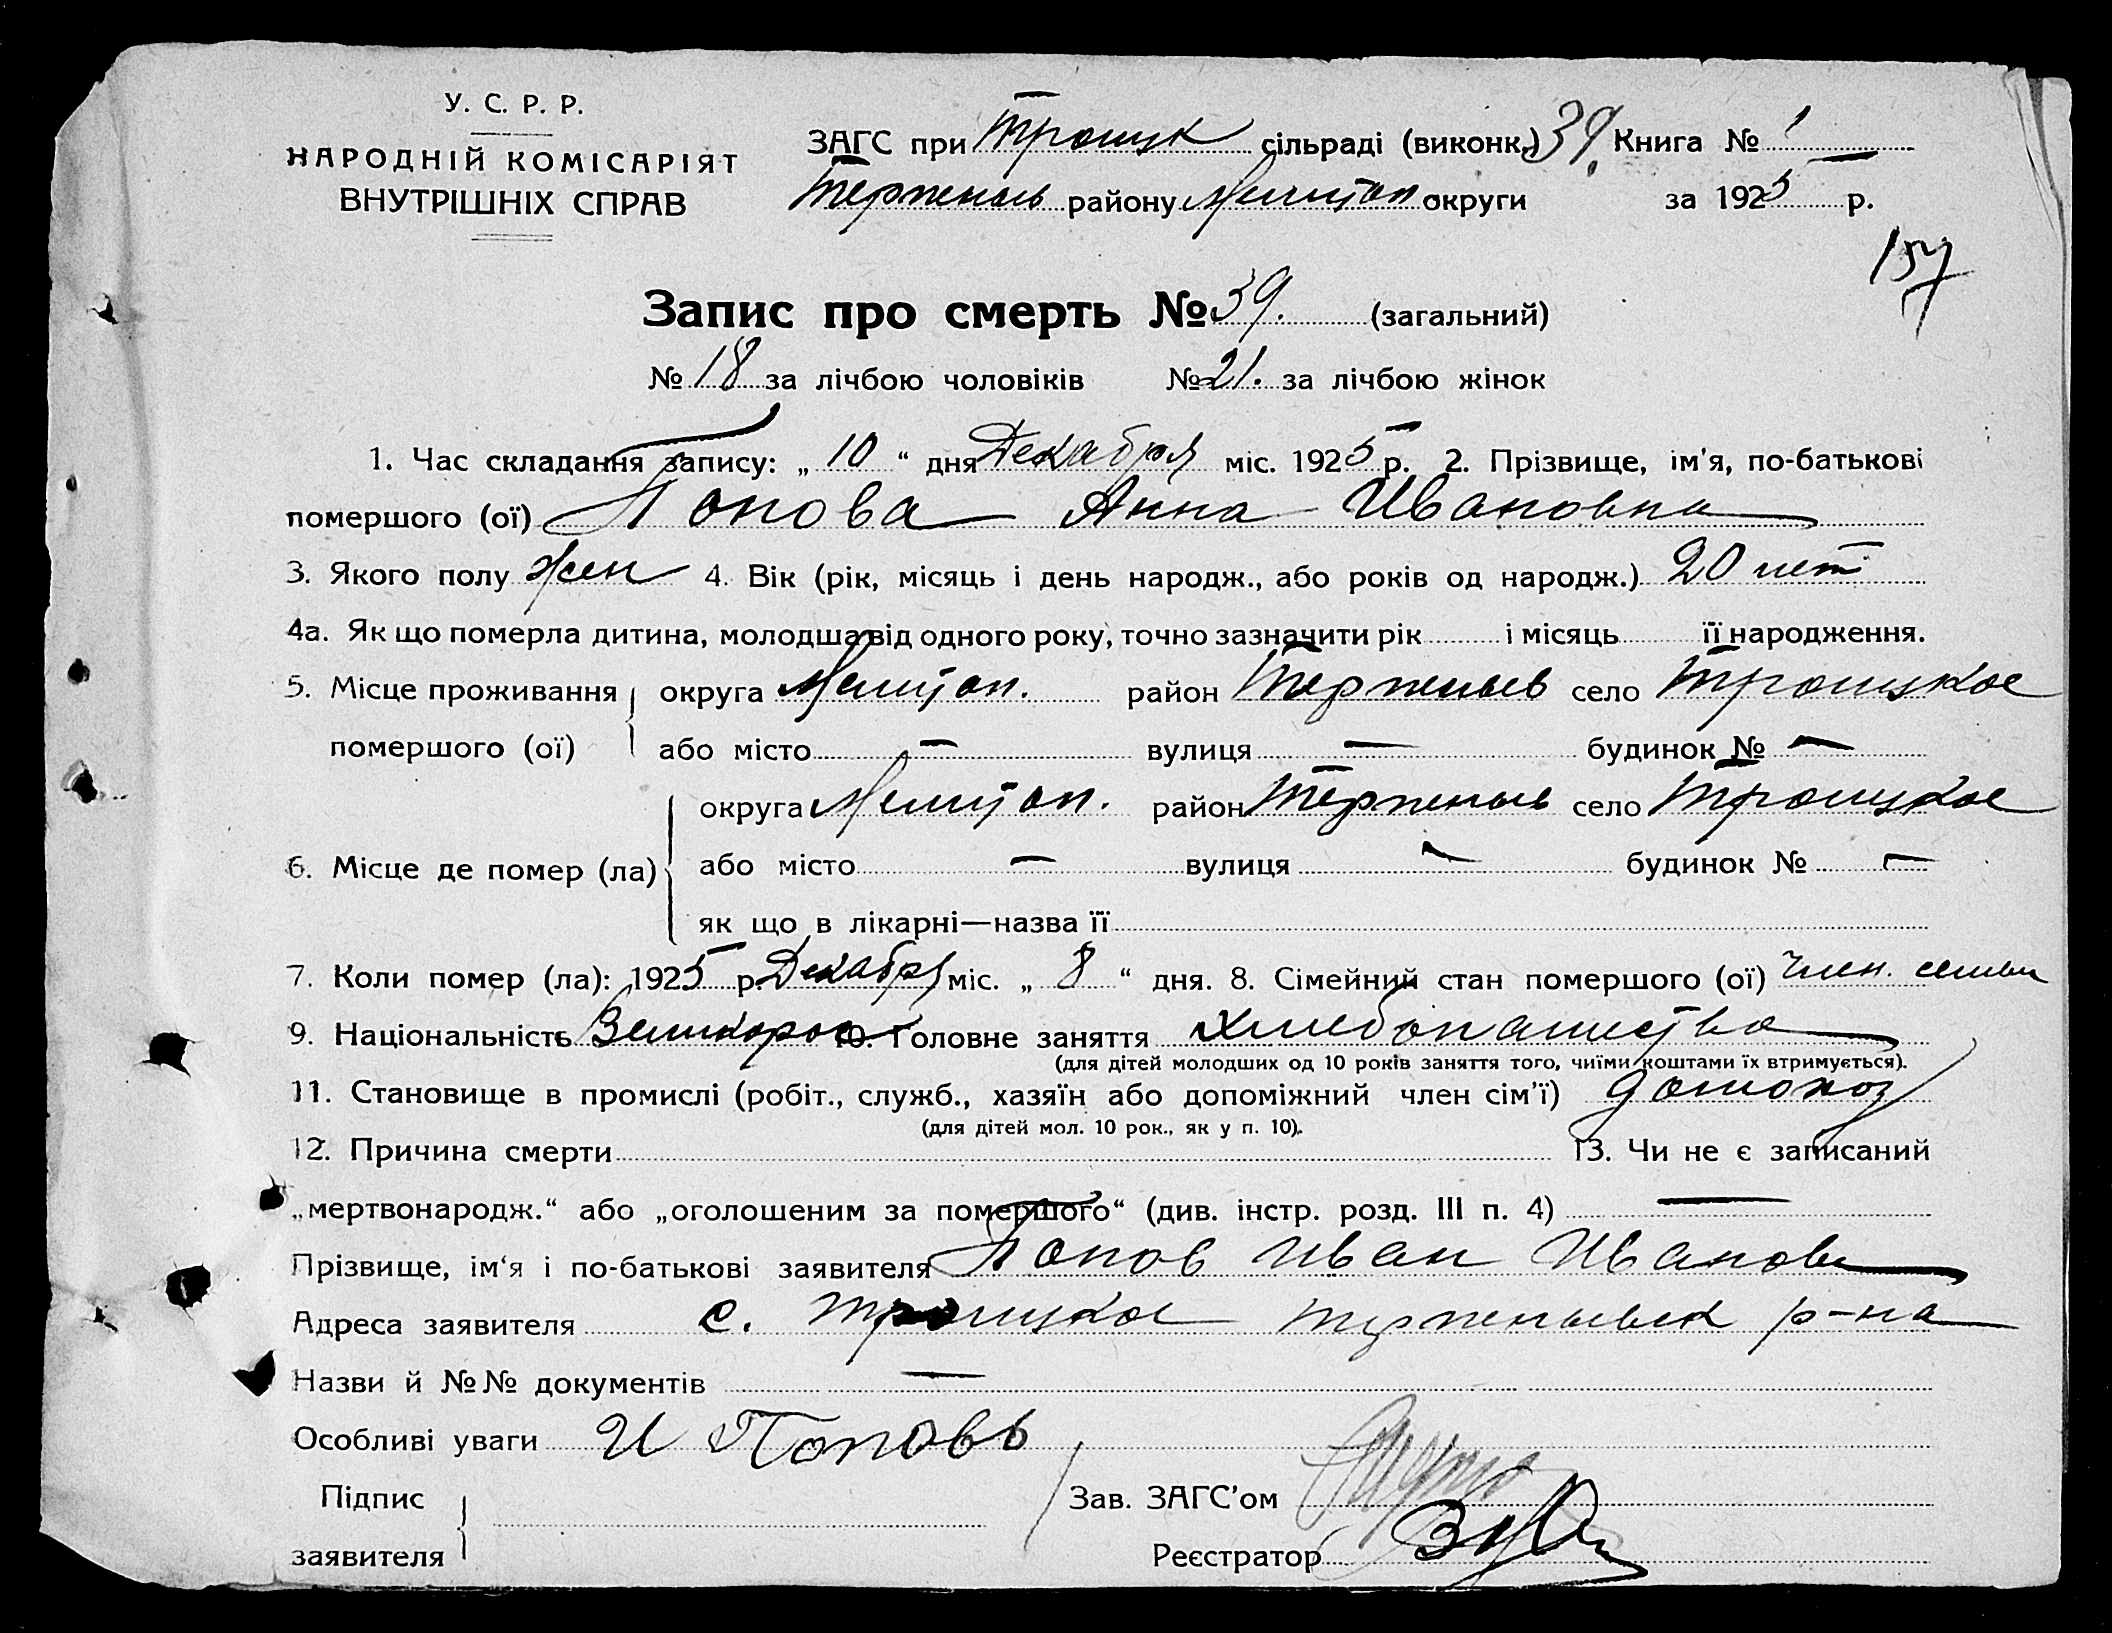 У. С. Р. Р.
НАРОДНІЙ КОМІСАРІЯТ
ВНУТРІШНІХ СПРАВ
ЗАГС при Троицк сільраді (виконк.) 39. Книга № 1
Терпеньев району Мелитоп округи за 1925 р.
157
Запис про смерть № 39. (загальний)
№ 18 за лічбою чоловіків № 21. за лічбою жінок
1. Час складання запису: „ 10 “ дня Декабря міс. 1925 р. 2. Прізвище, ім'я, по-батькові
помершого (ої) Попова Анна Ивановна
3. Якого полу жен 4. Вік (рік, місяць і день народж., або років од народж.) 20 лет
4а. Як що померла дитина, молодша від одного року, точно зазначити рік і місяць її народження.
5. Місце проживання округа Мелитоп. район Терпеньев село Троицкое
помершого (ої) або місто — вулиця — будинок № —
округа Мелитоп. район Терпеньев село Троицкое
6. Місце де помер (ла) або місто — вулиця — будинок № —
як що в лікарні—назва її
7. Коли помер (ла): 1925 р. Декабря міс. „ 8 “ дня. 8. Сімейний стан помершого (ої) Член. семьи
9. Національність Великорос 10. Головне заняття хлебопашество
(для дітей молодших од 10 років заняття того, чиїми коштами їх втримується).
11. Становище в промислі (робіт., служб., хазяїн або допоміжний член сім'ї) домохоз
(для дітей мол. 10 рок., як у п. 10).
12. Причина смерти 13. Чи не є записаний
„мертвонародж.“ або „оголошеним за помершого“ (див. інстр. розд. III п. 4) —
Прізвище, ім'я і по-батькові заявителя Попов Иван Иванов
Адреса заявителя с. Троицкое Терпеньевск р-на
Назви й №№ документів —
Особливі уваги И Поповъ
Підпис
заявителя
Зав. ЗАГС'ом
Реєстратор